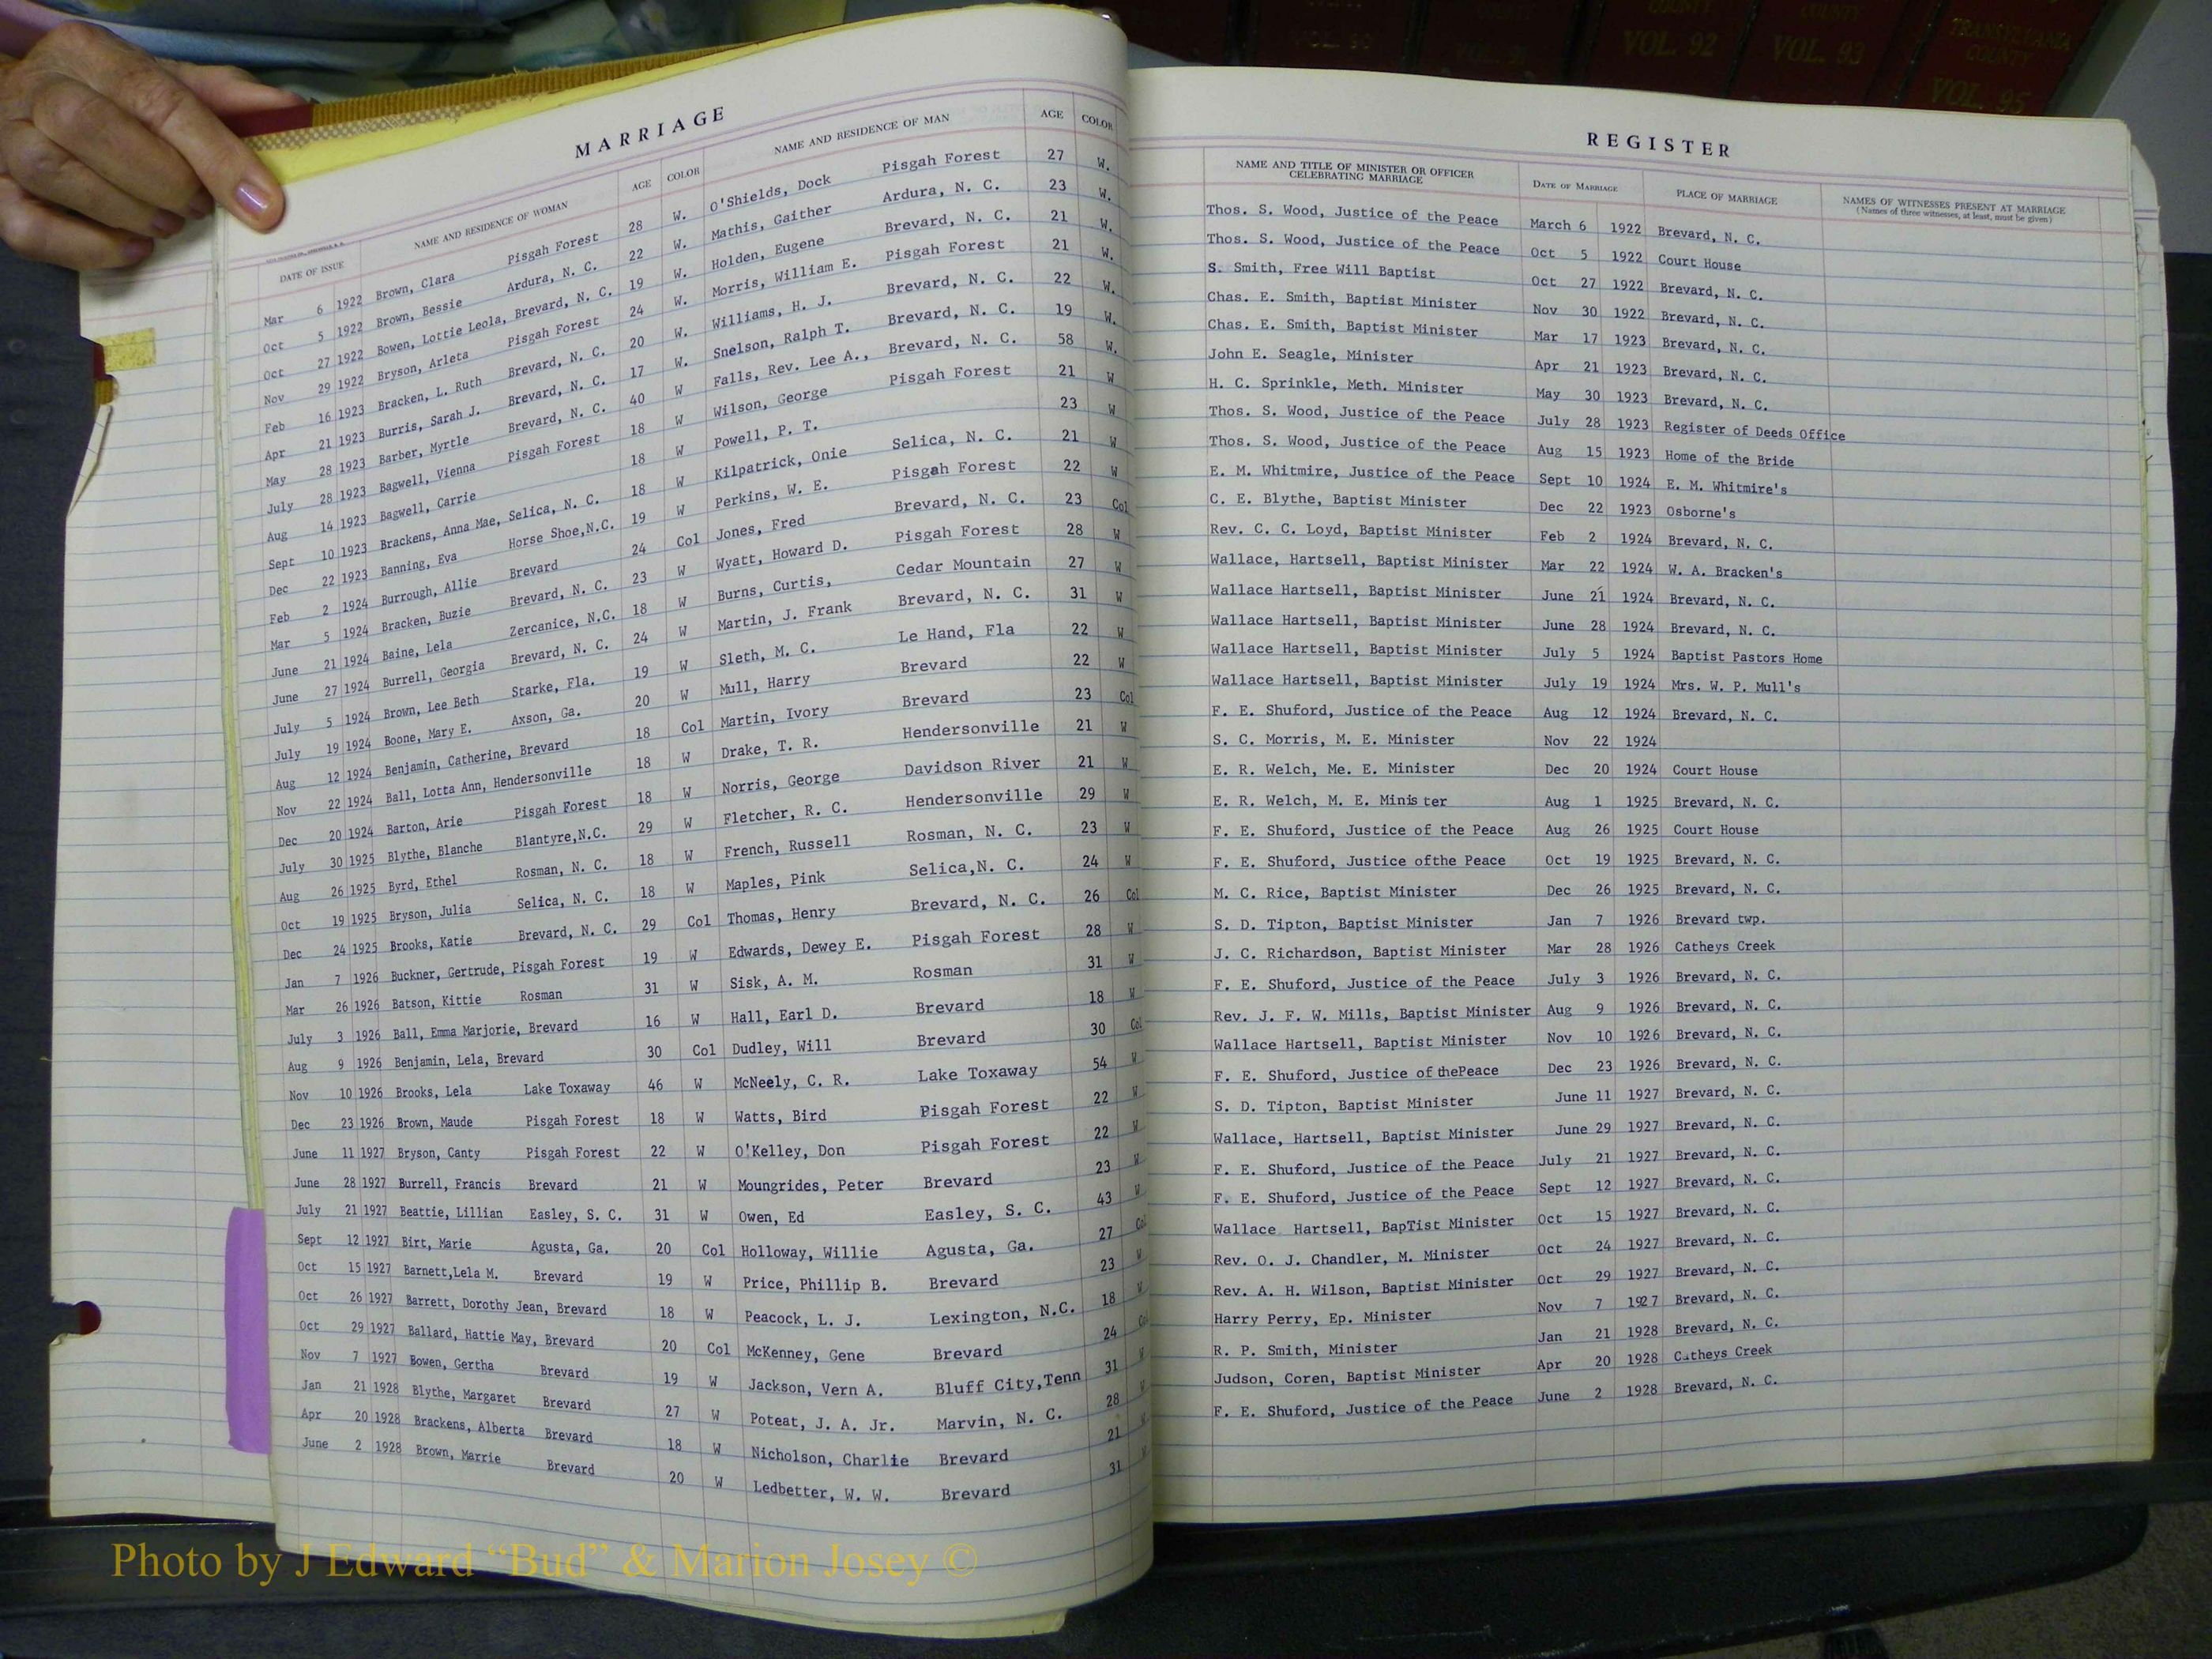 COUNTY
COUNTY
TRANSYLVANIA
COUNTY
VOL. 92
VOL. 93
VOL. 95
MARRIAGE
DATE OF ISSUE NAME AND RESIDENCE OF WOMAN AGE COLOR NAME AND RESIDENCE OF MAN AGE COLOR
Mar 6 1922 Brown, Clara Pisgah Forest 28 W. O'Shields, Dock Pisgah Forest 27 W.
Oct 5 1922 Brown, Bessie Ardura, N. C. 22 W. Mathis, Gaither Ardura, N. C. 23 W.
Oct 27 1922 Bowen, Lottie Leola, Brevard, N. C. 19 W. Holden, Eugene Brevard, N. C. 21 W.
Nov 29 1922 Bryson, Arleta Pisgah Forest 24 W. Morris, William E. Pisgah Forest 21 W.
Feb 16 1923 Bracken, L. Ruth Brevard, N. C. 20 W. Williams, H. J. Brevard, N. C. 22 W.
Apr 21 1923 Burris, Sarah J. Brevard, N. C. 17 W. Snelson, Ralph T. Brevard, N. C. 19 W.
May 28 1923 Barber, Myrtle Brevard, N. C. 40 W Falls, Rev. Lee A., Brevard, N. C. 58 W.
July 28 1923 Bagwell, Vienna Pisgah Forest 18 W Wilson, George Pisgah Forest 21 W
Aug 14 1923 Bagwell, Carrie 18 W Powell, P. T. 23 W
Sept 10 1923 Brackens, Anna Mae, Selica, N. C. 18 W Kilpatrick, Onie Selica, N. C. 21 W
Dec 22 1923 Banning, Eva Horse Shoe,N.C. 19 W Perkins, W. E. Pisgah Forest 22 W
Feb 2 1924 Burrough, Allie Brevard 24 Col Jones, Fred Brevard, N. C. 23 Col
Mar 5 1924 Bracken, Buzie Brevard, N. C. 23 W Wyatt, Howard D. Pisgah Forest 28 W
June 21 1924 Baine, Lela Zercanice, N.C. 18 W Burns, Curtis, Cedar Mountain 27 W
June 27 1924 Burrell, Georgia Brevard, N. C. 24 W Martin, J. Frank Brevard, N. C. 31 W
July 5 1924 Brown, Lee Beth Starke, Fla. 19 W Sleth, M. C. Le Hand, Fla 22 W
July 19 1924 Boone, Mary E. Axson, Ga. 20 W Mull, Harry Brevard 22 W
Aug 12 1924 Benjamin, Catherine, Brevard 18 Col Martin, Ivory Brevard 23 Col
Nov 22 1924 Ball, Lotta Ann, Hendersonville 18 W Drake, T. R. Hendersonville 21 W
Dec 20 1924 Barton, Arie Pisgah Forest 18 W Norris, George Davidson River 21 W
July 30 1925 Blythe, Blanche Blantyre,N.C. 29 W Fletcher, R. C. Hendersonville 29 W
Aug 26 1925 Byrd, Ethel Rosman, N. C. 18 W French, Russell Rosman, N. C. 23 W
Oct 19 1925 Bryson, Julia Selica, N. C. 18 W Maples, Pink Selica,N. C. 24 W
Dec 24 1925 Brooks, Katie Brevard, N. C. 29 Col Thomas, Henry Brevard, N. C. 26 Col
Jan 7 1926 Buckner, Gertrude, Pisgah Forest 19 W Edwards, Dewey E. Pisgah Forest 28 W
Mar 26 1926 Batson, Kittie Rosman 31 W Sisk, A. M. Rosman 31 W
July 3 1926 Ball, Emma Marjorie, Brevard 16 W Hall, Earl D. Brevard 18 W
Aug 9 1926 Benjamin, Lela, Brevard 30 Col Dudley, Will Brevard 30 Col
Nov 10 1926 Brooks, Lela Lake Toxaway 46 W McNeely, C. R. Lake Toxaway 54 W
Dec 23 1926 Brown, Maude Pisgah Forest 18 W Watts, Bird Pisgah Forest 22 W
June 11 1927 Bryson, Canty Pisgah Forest 22 W O'Kelley, Don Pisgah Forest 22 W
June 28 1927 Burrell, Francis Brevard 21 W Moungrides, Peter Brevard 23 W
July 21 1927 Beattie, Lillian Easley, S. C. 31 W Owen, Ed Easley, S. C. 43 W
Sept 12 1927 Birt, Marie Agusta, Ga. 20 Col Holloway, Willie Agusta, Ga. 27 Col
Oct 15 1927 Barnett,Lela M. Brevard 19 W Price, Phillip B. Brevard 23 W
Oct 26 1927 Barrett, Dorothy Jean, Brevard 18 W Peacock, L. J. Lexington, N.C. 18 W
Oct 29 1927 Ballard, Hattie May, Brevard 20 Col McKenney, Gene Brevard 24 Col
Nov 7 1927 Bowen, Gertha Brevard 19 W Jackson, Vern A. Bluff City,Tenn 31 W
Jan 21 1928 Blythe, Margaret Brevard 27 W Poteat, J. A. Jr. Marvin, N. C. 28 W
Apr 20 1928 Brackens, Alberta Brevard 18 W Nicholson, Charlie Brevard 21 W
June 2 1928 Brown, Marrie Brevard 20 W Ledbetter, W. W. Brevard 31 W
REGISTER
NAME AND TITLE OF MINISTER OR OFFICER CELEBRATING MARRIAGE DATE OF MARRIAGE PLACE OF MARRIAGE NAMES OF WITNESSES PRESENT AT MARRIAGE
(Names of three witnesses, at least, must be given)
Thos. S. Wood, Justice of the Peace March 6 1922 Brevard, N. C.
Thos. S. Wood, Justice of the Peace Oct 5 1922 Court House
S. Smith, Free Will Baptist Oct 27 1922 Brevard, N. C.
Chas. E. Smith, Baptist Minister Nov 30 1922 Brevard, N. C.
Chas. E. Smith, Baptist Minister Mar 17 1923 Brevard, N. C.
John E. Seagle, Minister Apr 21 1923 Brevard, N. C.
H. C. Sprinkle, Meth. Minister May 30 1923 Brevard, N. C.
Thos. S. Wood, Justice of the Peace July 28 1923 Register of Deeds Office
Thos. S. Wood, Justice of the Peace Aug 15 1923 Home of the Bride
E. M. Whitmire, Justice of the Peace Sept 10 1924 E. M. Whitmire's
C. E. Blythe, Baptist Minister Dec 22 1923 Osborne's
Rev. C. C. Loyd, Baptist Minister Feb 2 1924 Brevard, N. C.
Wallace, Hartsell, Baptist Minister Mar 22 1924 W. A. Bracken's
Wallace Hartsell, Baptist Minister June 21 1924 Brevard, N. C.
Wallace Hartsell, Baptist Minister June 28 1924 Brevard, N. C.
Wallace Hartsell, Baptist Minister July 5 1924 Baptist Pastors Home
Wallace Hartsell, Baptist Minister July 19 1924 Mrs. W. P. Mull's
F. E. Shuford, Justice of the Peace Aug 12 1924 Brevard, N. C.
S. C. Morris, M. E. Minister Nov 22 1924
E. R. Welch, Me. E. Minister Dec 20 1924 Court House
E. R. Welch, M. E. Minis ter Aug 1 1925 Brevard, N. C.
F. E. Shuford, Justice of the Peace Aug 26 1925 Court House
F. E. Shuford, Justice ofthe Peace Oct 19 1925 Brevard, N. C.
M. C. Rice, Baptist Minister Dec 26 1925 Brevard, N. C.
S. D. Tipton, Baptist Minister Jan 7 1926 Brevard twp.
J. C. Richardson, Baptist Minister Mar 28 1926 Catheys Creek
F. E. Shuford, Justice of the Peace July 3 1926 Brevard, N. C.
Rev. J. F. W. Mills, Baptist Minister Aug 9 1926 Brevard, N. C.
Wallace Hartsell, Baptist Minister Nov 10 1926 Brevard, N. C.
F. E. Shuford, Justice of thePeace Dec 23 1926 Brevard, N. C.
S. D. Tipton, Baptist Minister June 11 1927 Brevard, N. C.
Wallace, Hartsell, Baptist Minister June 29 1927 Brevard, N. C.
F. E. Shuford, Justice of the Peace July 21 1927 Brevard, N. C.
F. E. Shuford, Justice of the Peace Sept 12 1927 Brevard, N. C.
Wallace Hartsell, BapTist Minister Oct 15 1927 Brevard, N. C.
Rev. O. J. Chandler, M. Minister Oct 24 1927 Brevard, N. C.
Rev. A. H. Wilson, Baptist Minister Oct 29 1927 Brevard, N. C.
Harry Perry, Ep. Minister Nov 7 1927 Brevard, N. C.
R. P. Smith, Minister Jan 21 1928 Brevard, N. C.
Judson, Coren, Baptist Minister Apr 20 1928 Catheys Creek
F. E. Shuford, Justice of the Peace June 2 1928 Brevard, N. C.
Photo by J Edward “Bud” & Marion Josey ©